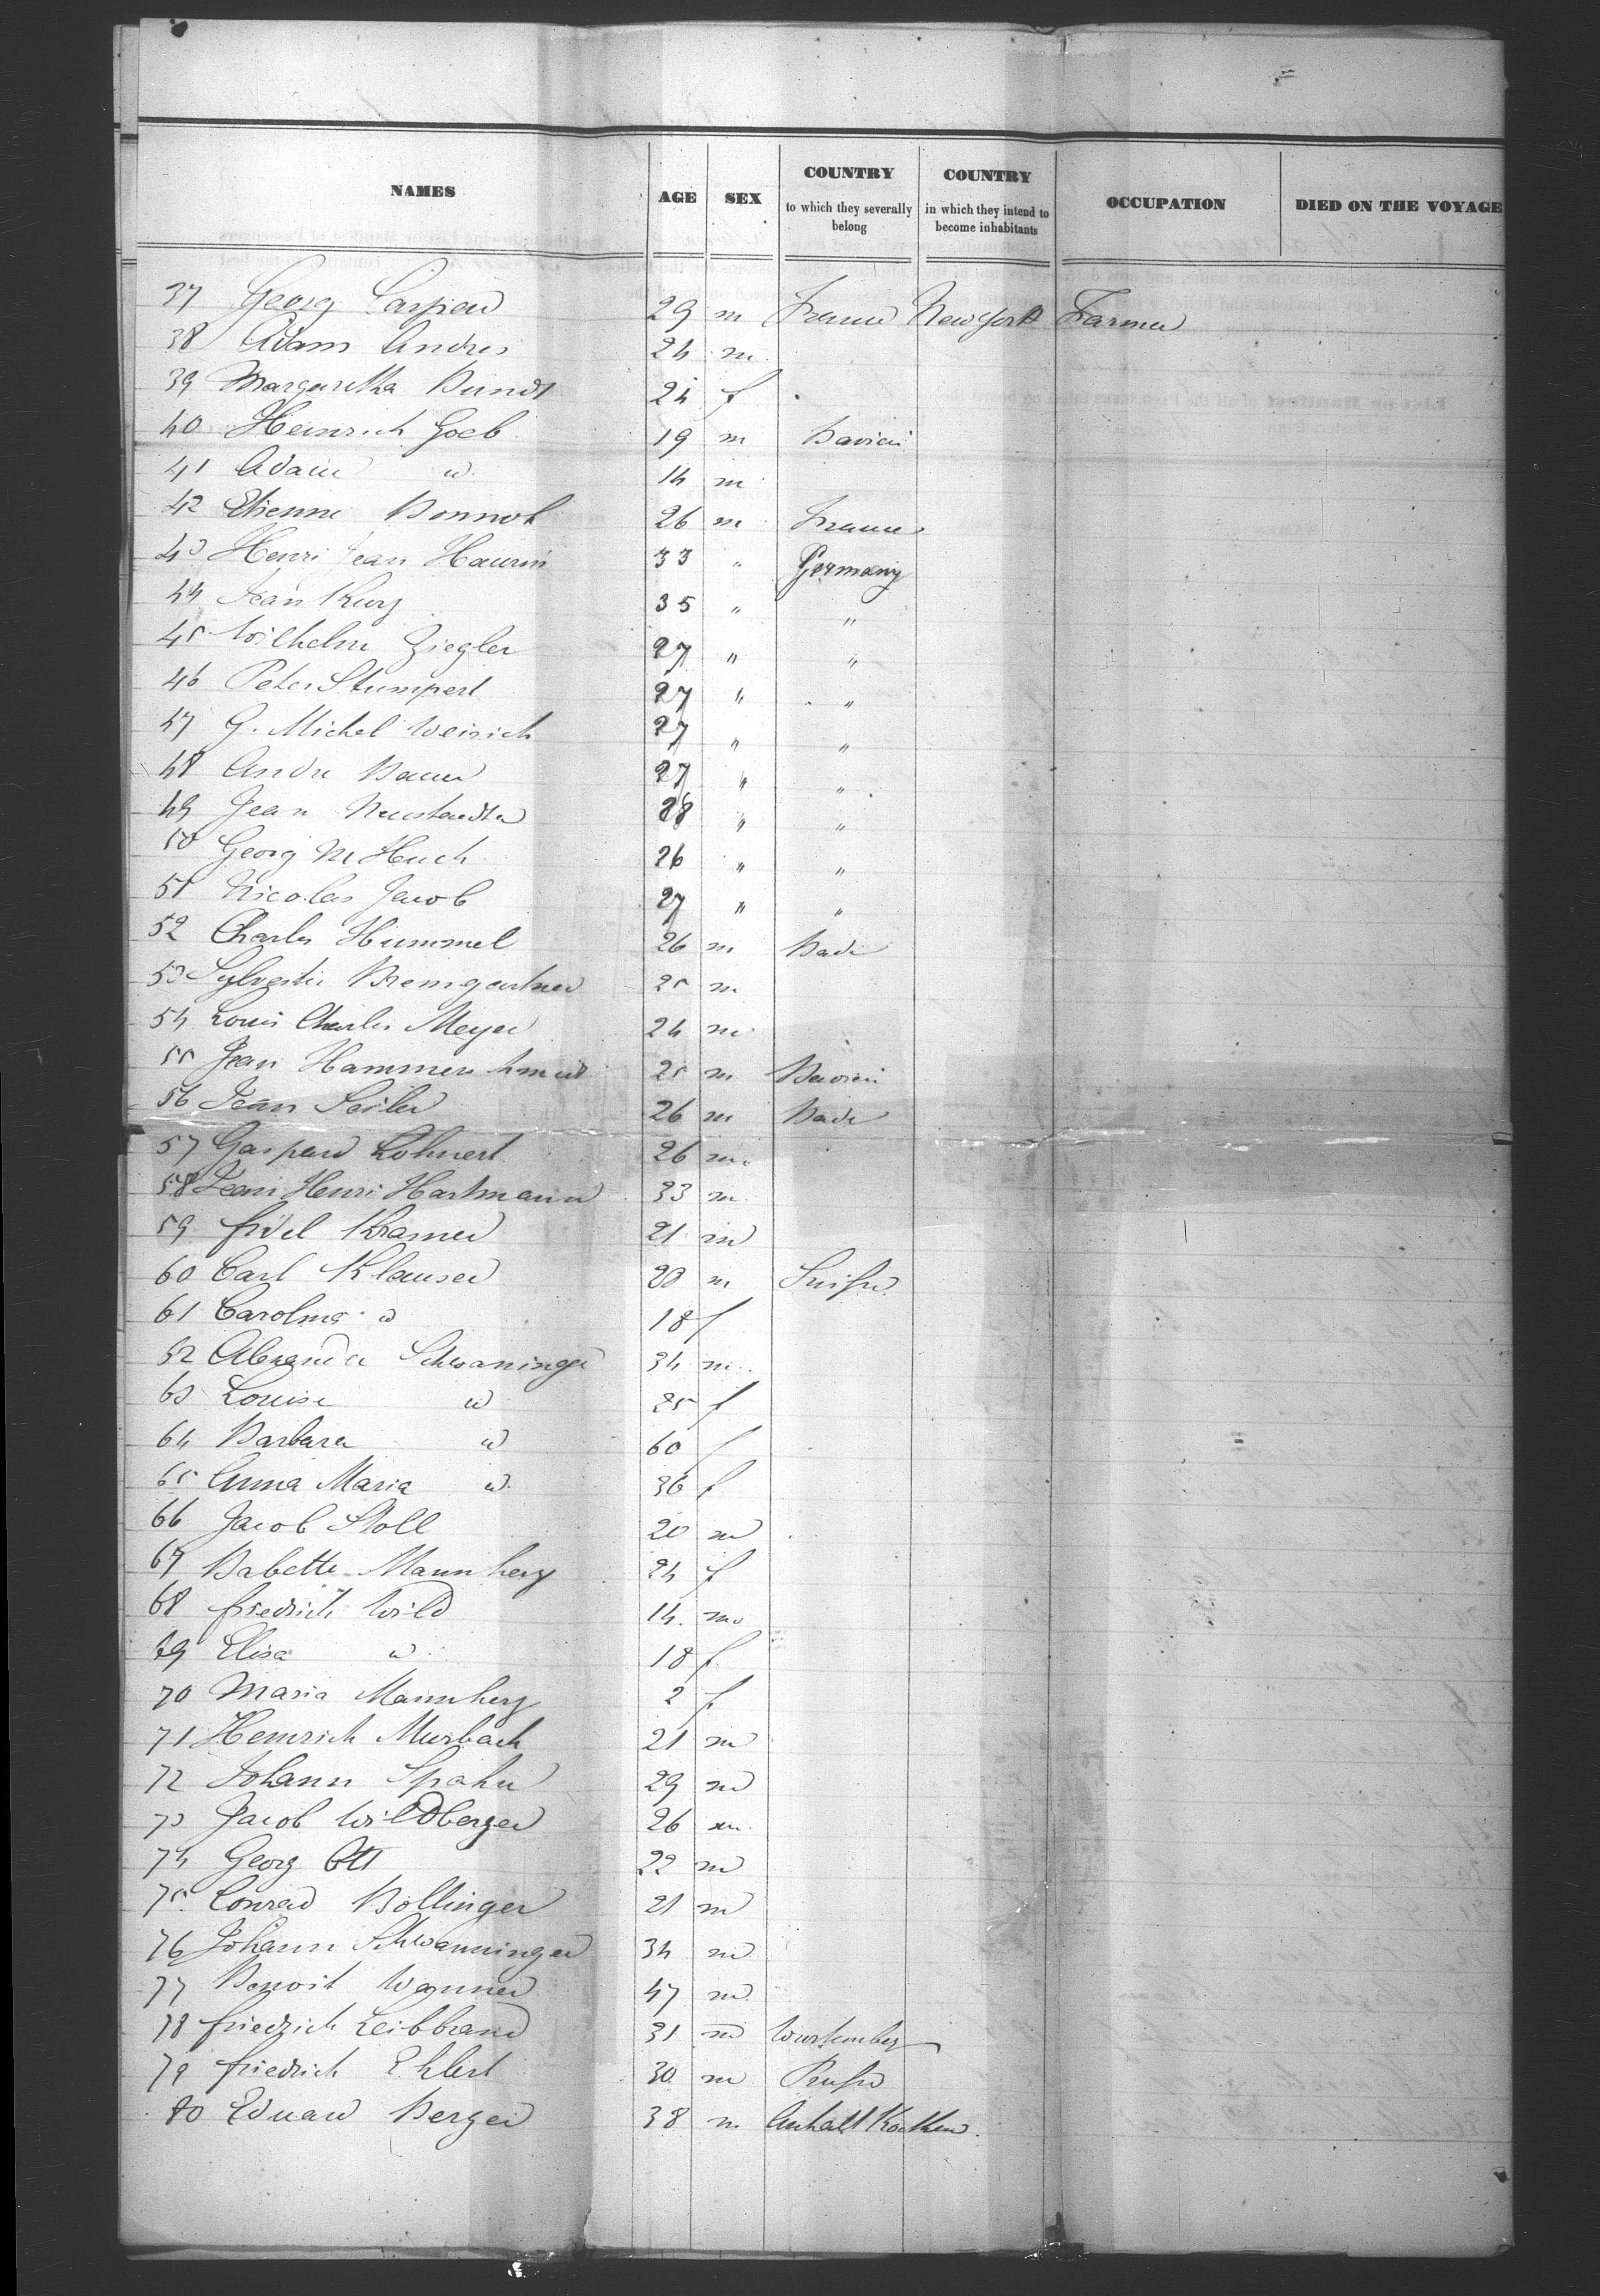 NAMES AGE SEX COUNTRY to which they severally belong COUNTRY in which they intend to become inhabitants OCCUPATION DIED ON THE VOYAGE
37 Georg 29 m France New York Farmer
38 Adam Andres 24 m
39 Margaretha Bundt 24 f
40 Heinrich Goeb 19 m Bavière
41 Adam 14 m
42 Etienne Bonnot 26 m France
43 Henri Jean Haurin 33 " Germany
44 Jean Kurz 35 " "
45 Wilhelm Ziegler 27 " "
46 Peter Stumpert 27 " "
47 G. Michel Weirich 27 " "
48 Andre Bauer 27 " "
49 Jean Neustaedter 28 " "
50 Georg M Huch 26 " "
51 Nicolas Jacob 27 " "
52 Charles Hummel 26 m Bade
53 Sylvestre Bremgartner 25 m
54 Louis Charles Meyer 24 m
55 Jean Hammerschmidt 25 m Bavière
56 Jean Seiler 26 m Bade
57 Gaspard Löhnert 26 m
58 Jean Henri Hartmann 33 m
59 fidel Kramer 21 m
60 Carl Klauser 20 m Suisse
61 Carolina 18 f
52 Alexander Schwaninger 34 m
63 Louise 25 f
64 Barbara 60 f
65 Anna Maria 36 f
66 Jacob Stoll 20 m
67 Babette Mannherz 24 f
68 friedrich Wild 14 m
69 Elisa 18 f
70 Maria Mannherz 2 f
71 Heinrich Murbach 21 m
72 Johann Spahn 29 m
73 Jacob Wildberger 26 m
74 Georg Ott 22 m
75 Conrad Bollinger 21 m
76 Johann Schwanninger 34 m
77 Benoit Wanner 47 m
78 friedrich Leibbrand 31 m Wurtemberg
79 friedrich Ehlert 30 m Prusse
80 Eduard Berger 38 m Anhalt Koethen